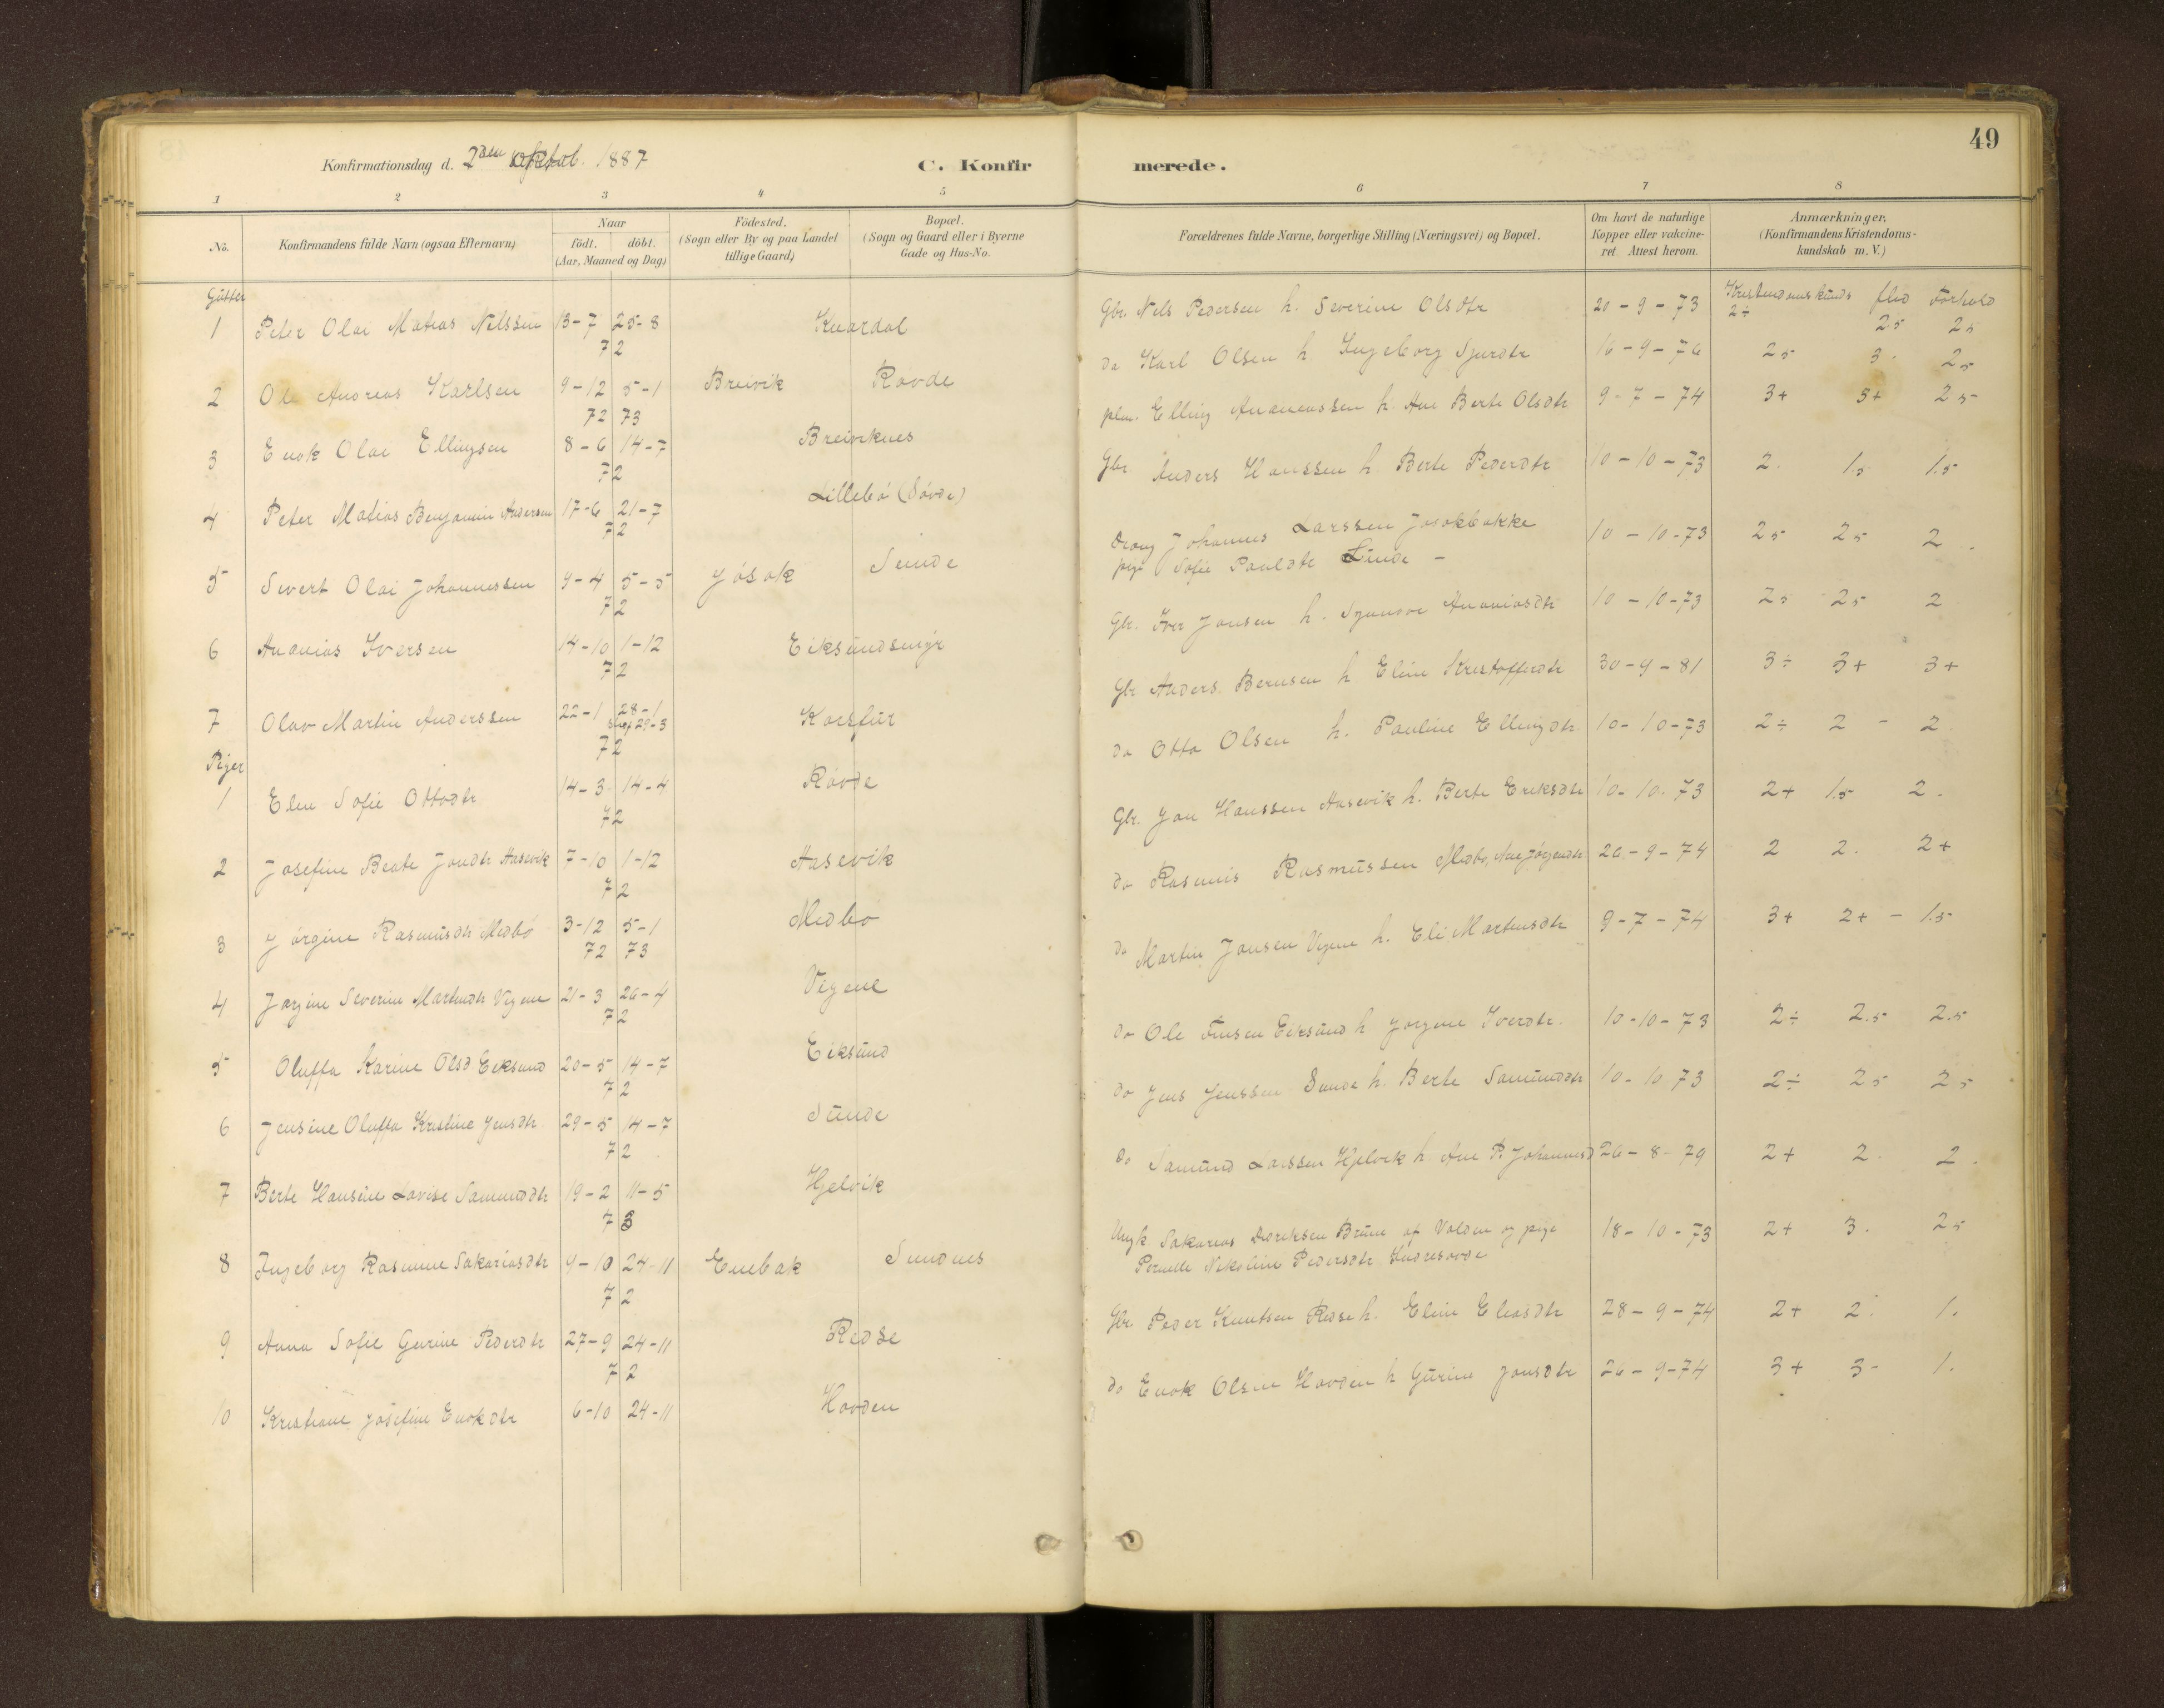 49
Konfirmationsdag d. 2den Oktob. 1887
C. Konfirmerede.
1 2 3 4 5 6 7 8
No.
Konfirmandens fulde Navn (ogsaa Efternavn)
Naar
födt. döbt.
(Aar, Maaned og Dag)
Födested.
(Sogn eller By og paa Landet
tillige Gaard)
Bopæl.
(Sogn og Gaard eller i Byerne
Gade og Hus-No.
Forældrenes fulde Navne, borgerlige Stilling (Næringsvei) og Bopæl.
Om havt de naturlige
Kopper eller vakcine-
ret Attest herom.
Anmærkninger.
(Konfirmandens Kristendoms-
kundskab m. V.)
Gutter
Kristendomskunds flid Forhold
1 Peter Olai Matias Nilssen 13-7 25-8 Gbr. Nils Pedersen h. Severine Olsdtr 20-9-73 2÷ 2.5 25
72
2 Ole Andreas Karlsen 9-12 5-1 Breivik Rovde do Karl Olsen h Ingeborg Sjurdtr 16-9-76 25 3. 25
72 73
3 Enok Olai Ellingsen 8-6 14-7 Breiviknes Elling h. Ane Berte Olsdtr 9-7-74 3+ 3+ 25
72
4 Peter Matias Benjamin Andersen 17-6 21-7 Lillebø (Søvde) Gbr. Anders Hanssen h. Berte Pederdtr 10-10-73 2. 1.5 1.5
72
5 Sivert Olai Johannessen 9-4 5-5 Jøsok Sunde Johannes Larssen Jøsokbakke 10-10-73 25 25 2.
72
pige Sofie Pauldtr Sunde -
6 Ananias Iversen 14-10 1-12 Eiksundsmyr Gbr. Iver Jonsen h. Synnøve Ananiasdtr 10-10-73 25 25 2
72
7 Olav Martin Anderssen 22-1 28-1 29-3 Gbr Anders Bernsen h Eline Kristofferdtr 30-9-81 3÷ 3+ 3+
72
Piger
1 Elen Sofie Ottodtr 14-3 14-4 Røvde do Otto Olsen h. Pauline Ellingdtr 10-10-73 2÷ 2 - 2
72
2 Josefine Beate Jondtr Hasevik 7-10 1-12 Hasevik Gbr. Jon Hanssen Hasevik h. Berte Eriksdtr 10-10-73 2+ 1.5 2.
72
3 Jørgine Rasmusdtr Medbø 3-12 5-1 Medbø do Rasmus Rasmussen Medbø, Ane Jørgendtr 26-9-74 2 2. 2+
72 73
4 Jørgine Severine Martindtr Vigene 21-3 26-4 Vigene do Martin Jonsen Vigene h. Eli Martinsdtr 9-7-74 3+ 2+ - 1.5
72
5 Oluffa Karine Olsd Eiksund 20-5 14-7 Eiksund do Ole Eiksund h Jørgine Iverdtr. 10-10-73 2÷ 2.5 2.5
72
6 Jensine Oluffa Kristine Jensdtr 29-5 14-7 Sunde do Jens Jenssen Sunde h. Berte Samunddtr 10-10 73 2÷ 25 25
72
7 Berte Hansine Lovise Samunddtr 19-2 11-5 Hjelvik do Samund Larssen Hjelvik h Ane P. Johannesd 26-8-79 2+ 2. 2.
73
8 Ingeborg Rasmine Sakariasdtr 9-10 24-11 Enebak Sundnes Ungk Sakarias Didriksen Brune af Volden og pige 18-10-73 2+ 3. 25
72
Pernille Nikoline Pedersdtr
9 Anna Sofie Gurine Pederdtr 27-9 24-11 Redse Gbr. Peder Knutsen Redse h. Eline Eliasdtr 28-9-74 2+ 2. 1.
72
10 Kristiane Josefine Enokdtr 6-10 24-11 Hovden do Enok Olsen Hovden h Gurine Jonsdtr 26-9-74 3+ 3- 1.